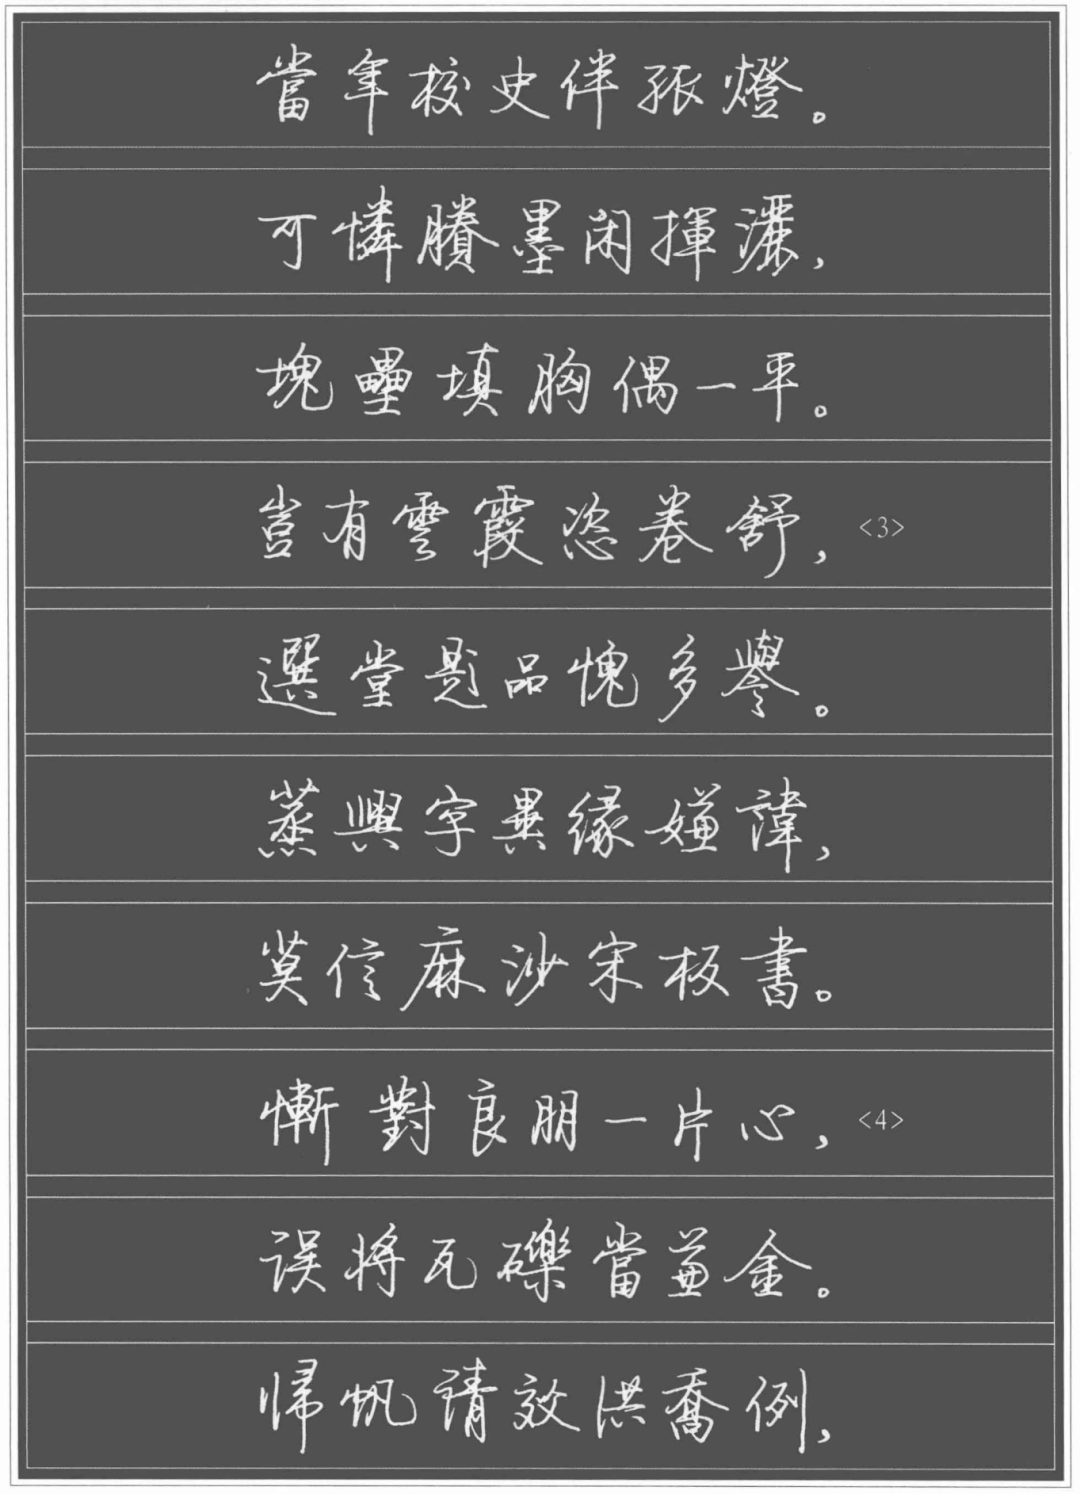 當年校史伴張燈。
可憐賸墨闲揮灑,
塊壘填胸偶一平。
豈有雲霞恣卷舒, <3>
選堂題品愧多譽。
蒸興字異緣嫌諱,
莫信麻沙宋板書。
慚對良朋一片心, <4>
误將瓦礫當兼金。
歸帆請效洪喬例,